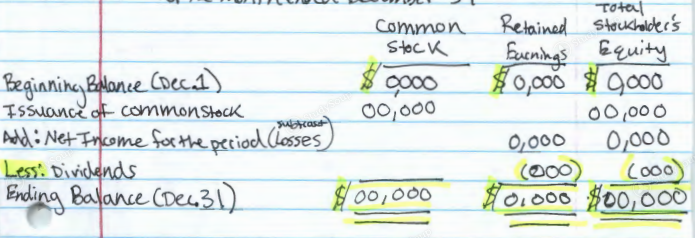 of the month ended December 31
Common Stock Retained Earnings Total Stockholder's Equity
Beginning Balance (Dec.1) $ 0,000 $ 0,000 $ 0,000
Issuance of common stock 00,000 00,000
Add: Net Income for the period (subtract Losses) 0,000 0,000
Less: Dividends (000) (000)
Ending Balance (Dec.31) $ 00,000 $ 0,000 $ 00,000